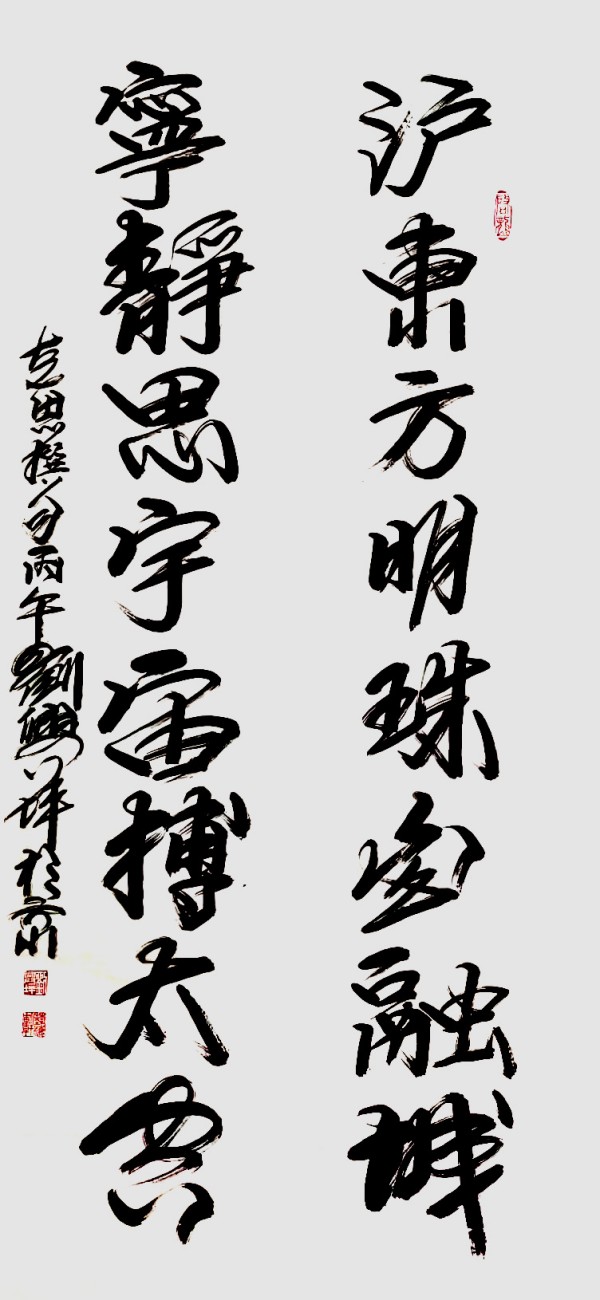 沪東方明珠金融城
寧靜思宇宙搏太空
思撰 丙午劉興